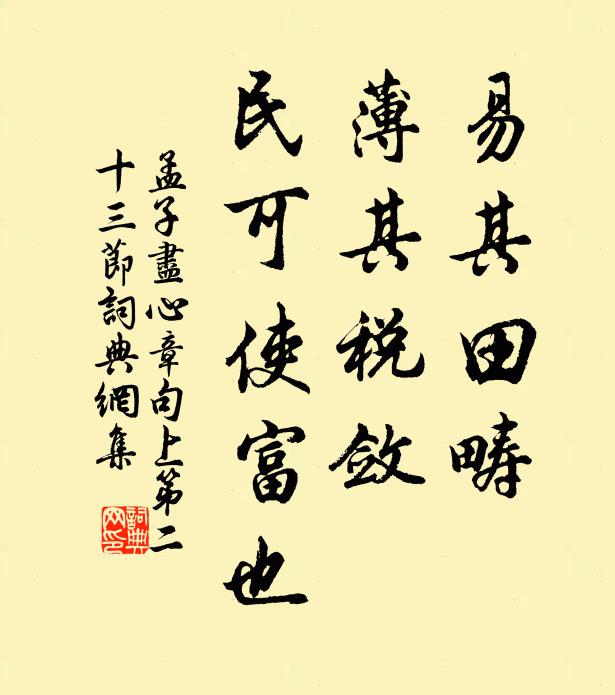 易其田疇
薄其税斂
民可使富也
孟子盡心章句上第二
十三節詞典網集
詞典
网印